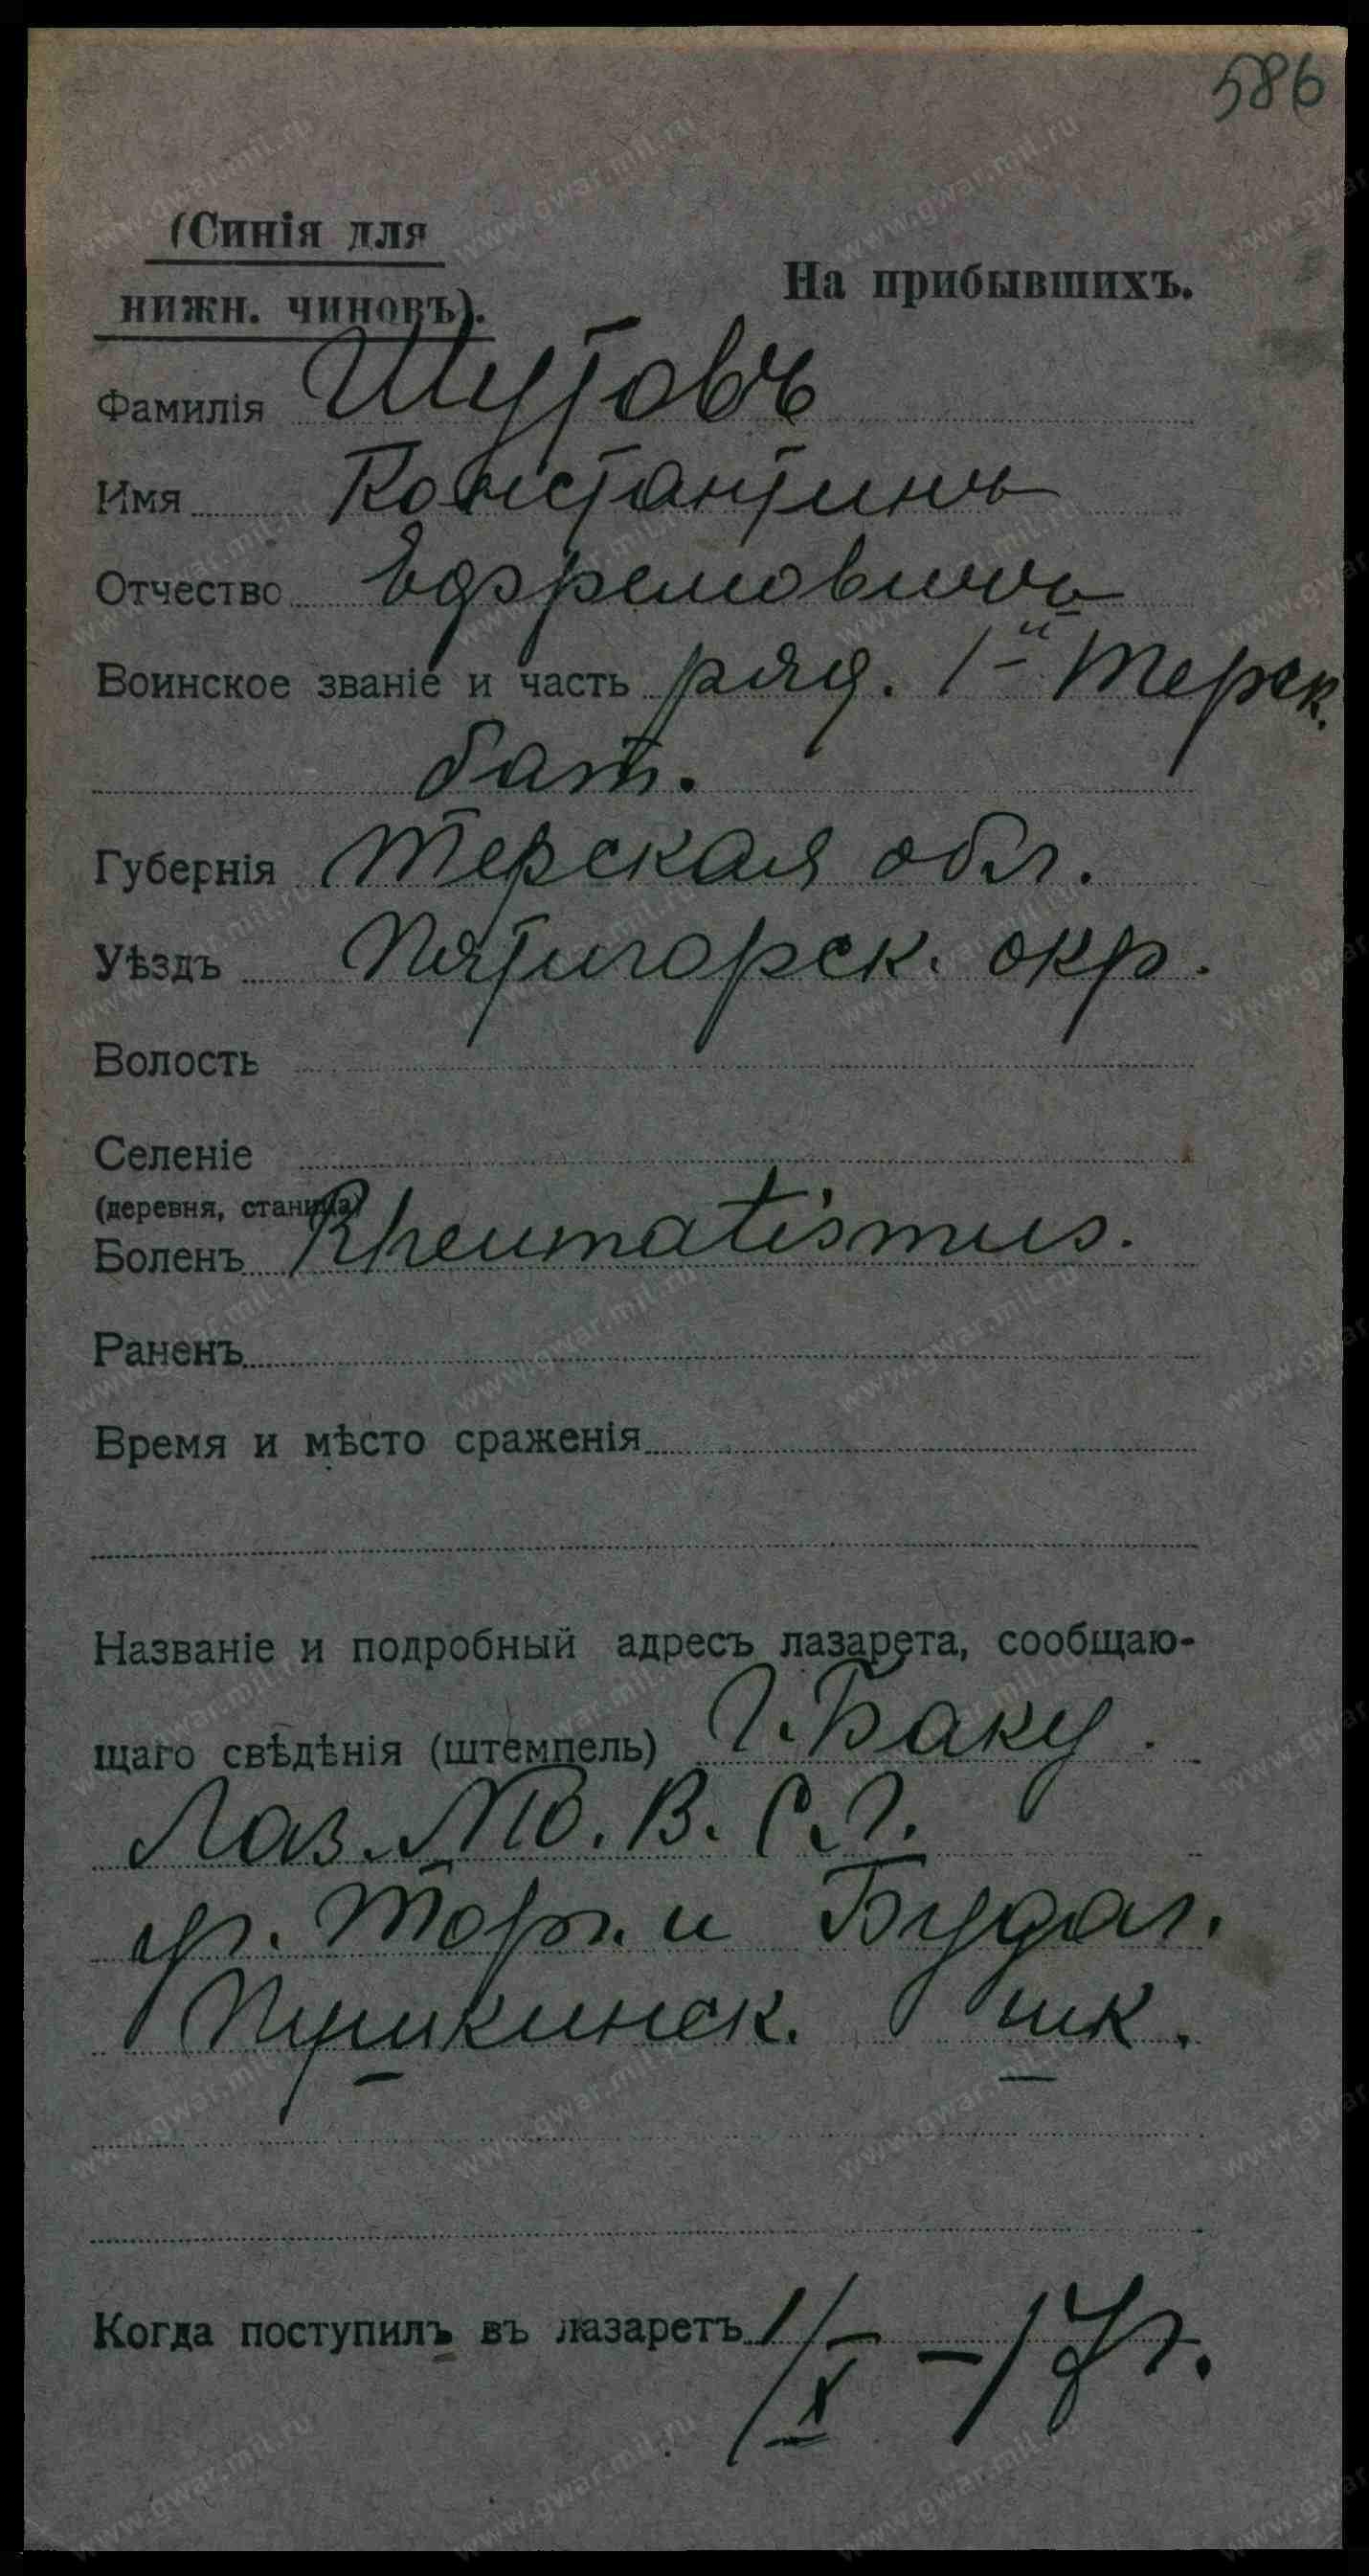 586
(Синія для
нижн. чиновъ).
На прибывшихъ.
Фамилія Шутовъ
Имя Константинъ
Отчество Ефремовичъ
Воинское званіе и часть ряд. 1-й Терск.
бат.
Губернія Терская обл.
Уѣздъ Пятигорск. окр.
Волость
Селеніе
(деревня, станица)
Боленъ Rheumatismus.
Раненъ
Время и мѣсто сраженія
Названіе и подробный адресъ лазарета, сообщаю-
щаго свѣдѣнія (штемпель) г. Баку.
Лаз. В. С. Г.
уг. Торг. и Будаг.
Пушкинск. шк.
Когда поступилъ въ лазаретъ 1/X - 17 г.
www.gwar.mil.ru